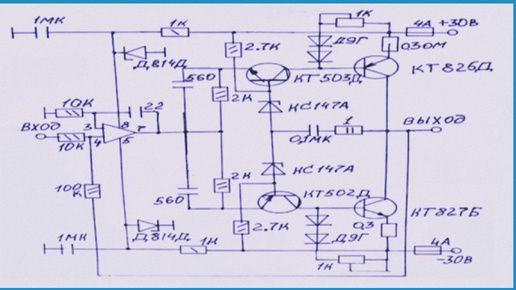 1МК
1К
1К
4А +30В
Д9Г
0,30М
2.7К
Д814Д
560
КТ503Д
КТ826Д
2К
КС147А
10К
22
ВХОД
3
8
7
4
5
10К
0,1МК
1
ВЫХОД
КС147А
100К
2К
560
КТ502Д
КТ827Б
Д814Д
2.7К
Д9Г
0,3
1МК
1К
4А
-30В
1К